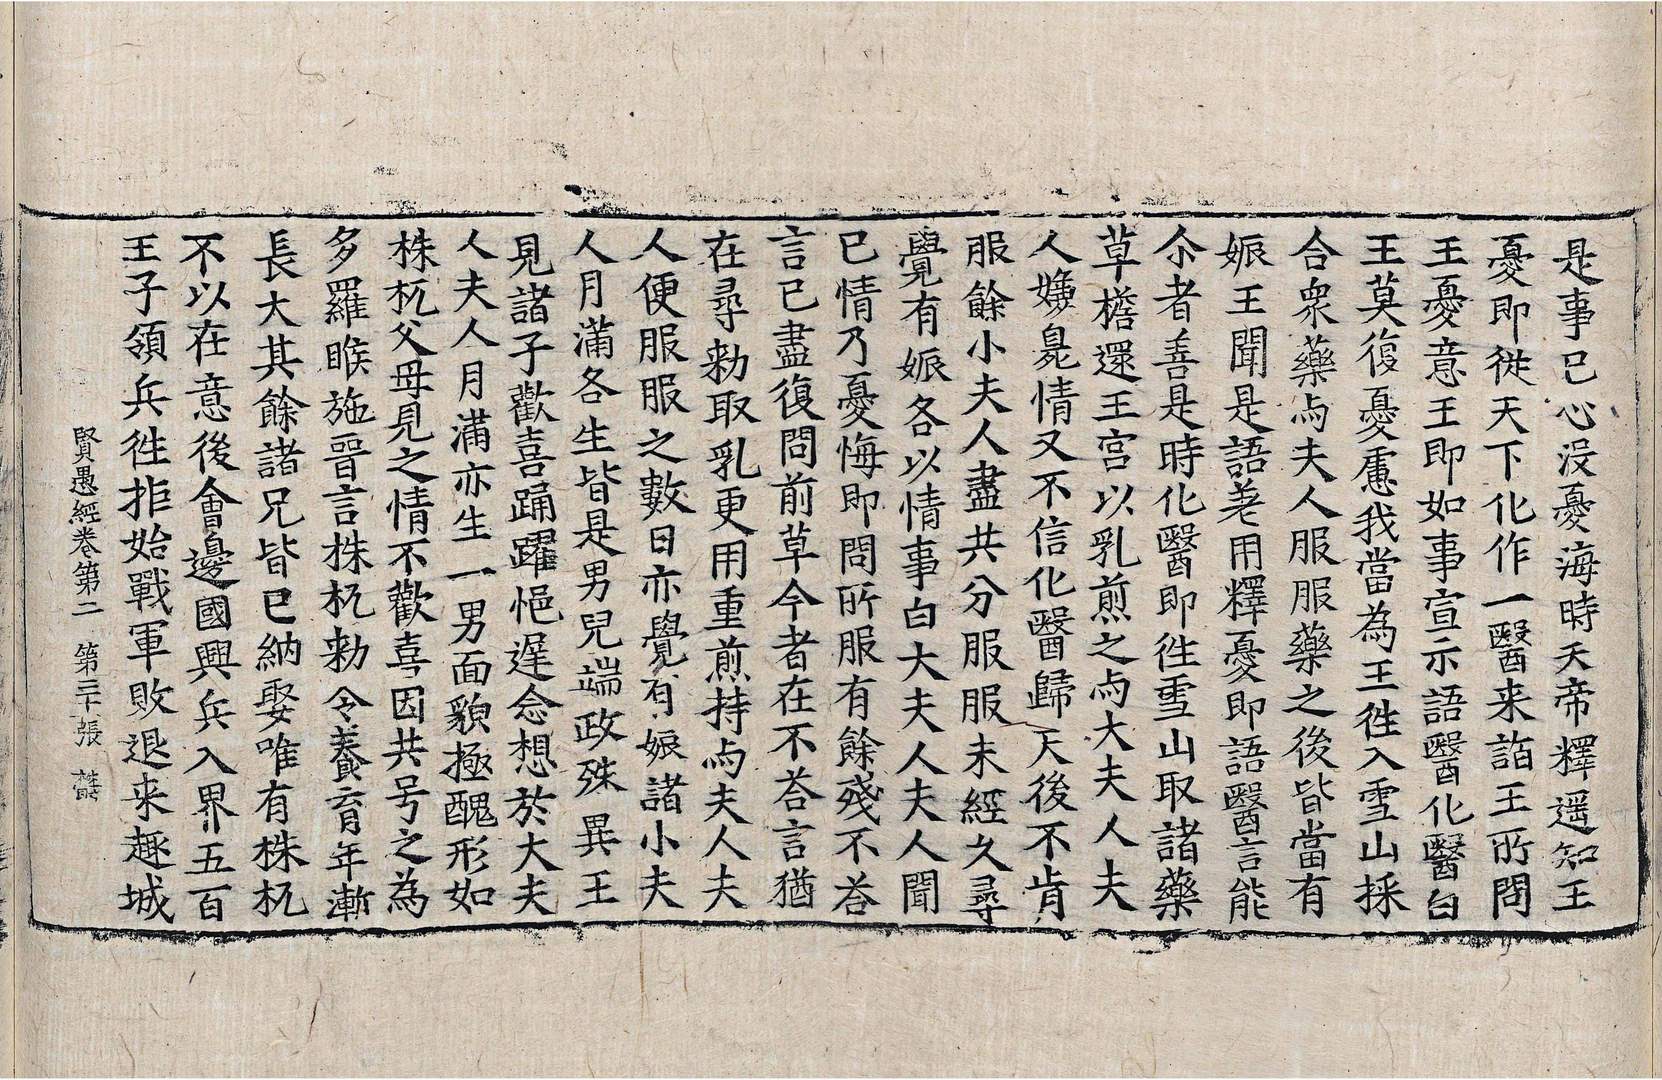 是事已心没憂海時天帝釋遥知王
憂即從天下化作一醫来詣王所問
王憂意王即如事宣示語醫化醫白
王莫復憂慮我當為王徃入雪山採
合衆藥与夫人服服藥之後皆當有
娠王聞是語差用釋憂即語醫言能
尒者善是時化醫即徃雪山取諸藥
草檐還王宫以乳煎之与大夫人夫
人嫌臭情又不信化醫歸天後不肯
服餘小夫人盡共分服服未經久尋
覺有娠各以情事白大夫人夫人聞
已情乃憂悔即問所服有餘殘不荅
言已盡復問前草今者在不荅言猶
在尋勑取乳更用重煎持与夫人夫
人便服服之數日亦覺有娠諸小夫
人月滿各生皆是男兒端政殊異王
見諸子歡喜踊躍悒遟念想於大夫
人夫人月滿亦生一男面貌極醜形如
株杌父母見之情不歡喜因共号之為
多羅睺施晋言株杌勑令養育年漸
長大其餘諸兄皆已納娶唯有株杌
不以在意後會邊國興兵入界五百
王子領兵徃拒始戰軍敗退来趣城
賢愚經卷第二　第三十張